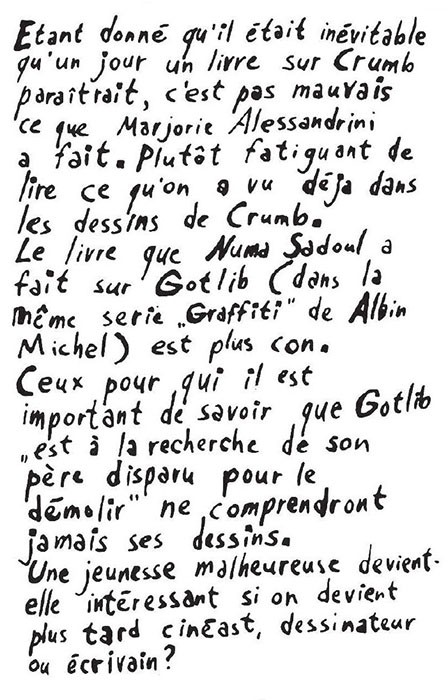 Etant donné qu'il était inévitable
qu'un jour un livre sur Crumb
paraîtrait, c'est pas mauvais
ce que Marjorie Alessandrini
a fait. Plutôt fatiguant de
lire ce qu'on a vu déja dans
les dessins de Crumb.
Le livre que Numa Sadoul a
fait sur Gotlib (dans la
même serie „Graffiti" de Albin
Michel) est plus con.
Ceux pour qui il est
important de savoir que Gotlib
„est à la recherche de son
père disparu pour le
démolir" ne comprendront
jamais ses dessins.
Une jeunesse malheureuse devient-
elle intéressant si on devient
plus tard cinéast, dessinateur
ou écrivain?